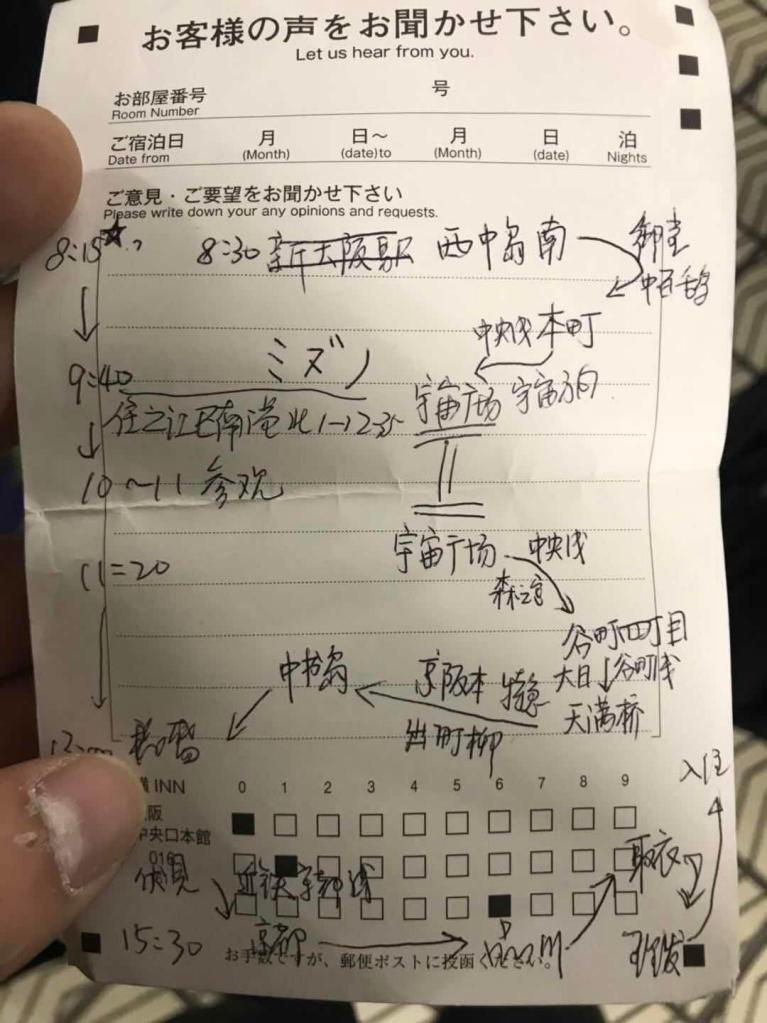 お客様の声をお聞かせ下さい。
Let us hear from you.
お部屋番号 号
Room Number
ご宿泊日 月 日～ 月 日 泊
Date from (Month) (date)to (Month) (date) Nights
ご意見・ご要望をお聞かせ下さい
Please write down your any opinions and requests.
8:15 8:30 新大阪駅 西中島南 御堂
中百舌鳥
中央线 本町
9:40 ミズノ 宇宙广场 宇宙方向
住之江区南港北1-12-35
10～11 参观
11:20 宇宙广场 中央线
森之宫
谷町四丁目
大日 谷町线
天满桥
中书岛 京阪本 特急
出町柳
INN 0 1 2 3 4 5 6 7 8 9
阪
中央口本館
016
伏見 近铁京都线 取衣 入住
15:30 京都 品川
お手数ですが、郵便ポストに投函ください。